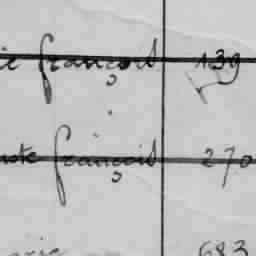 françois 139
françois 270
683